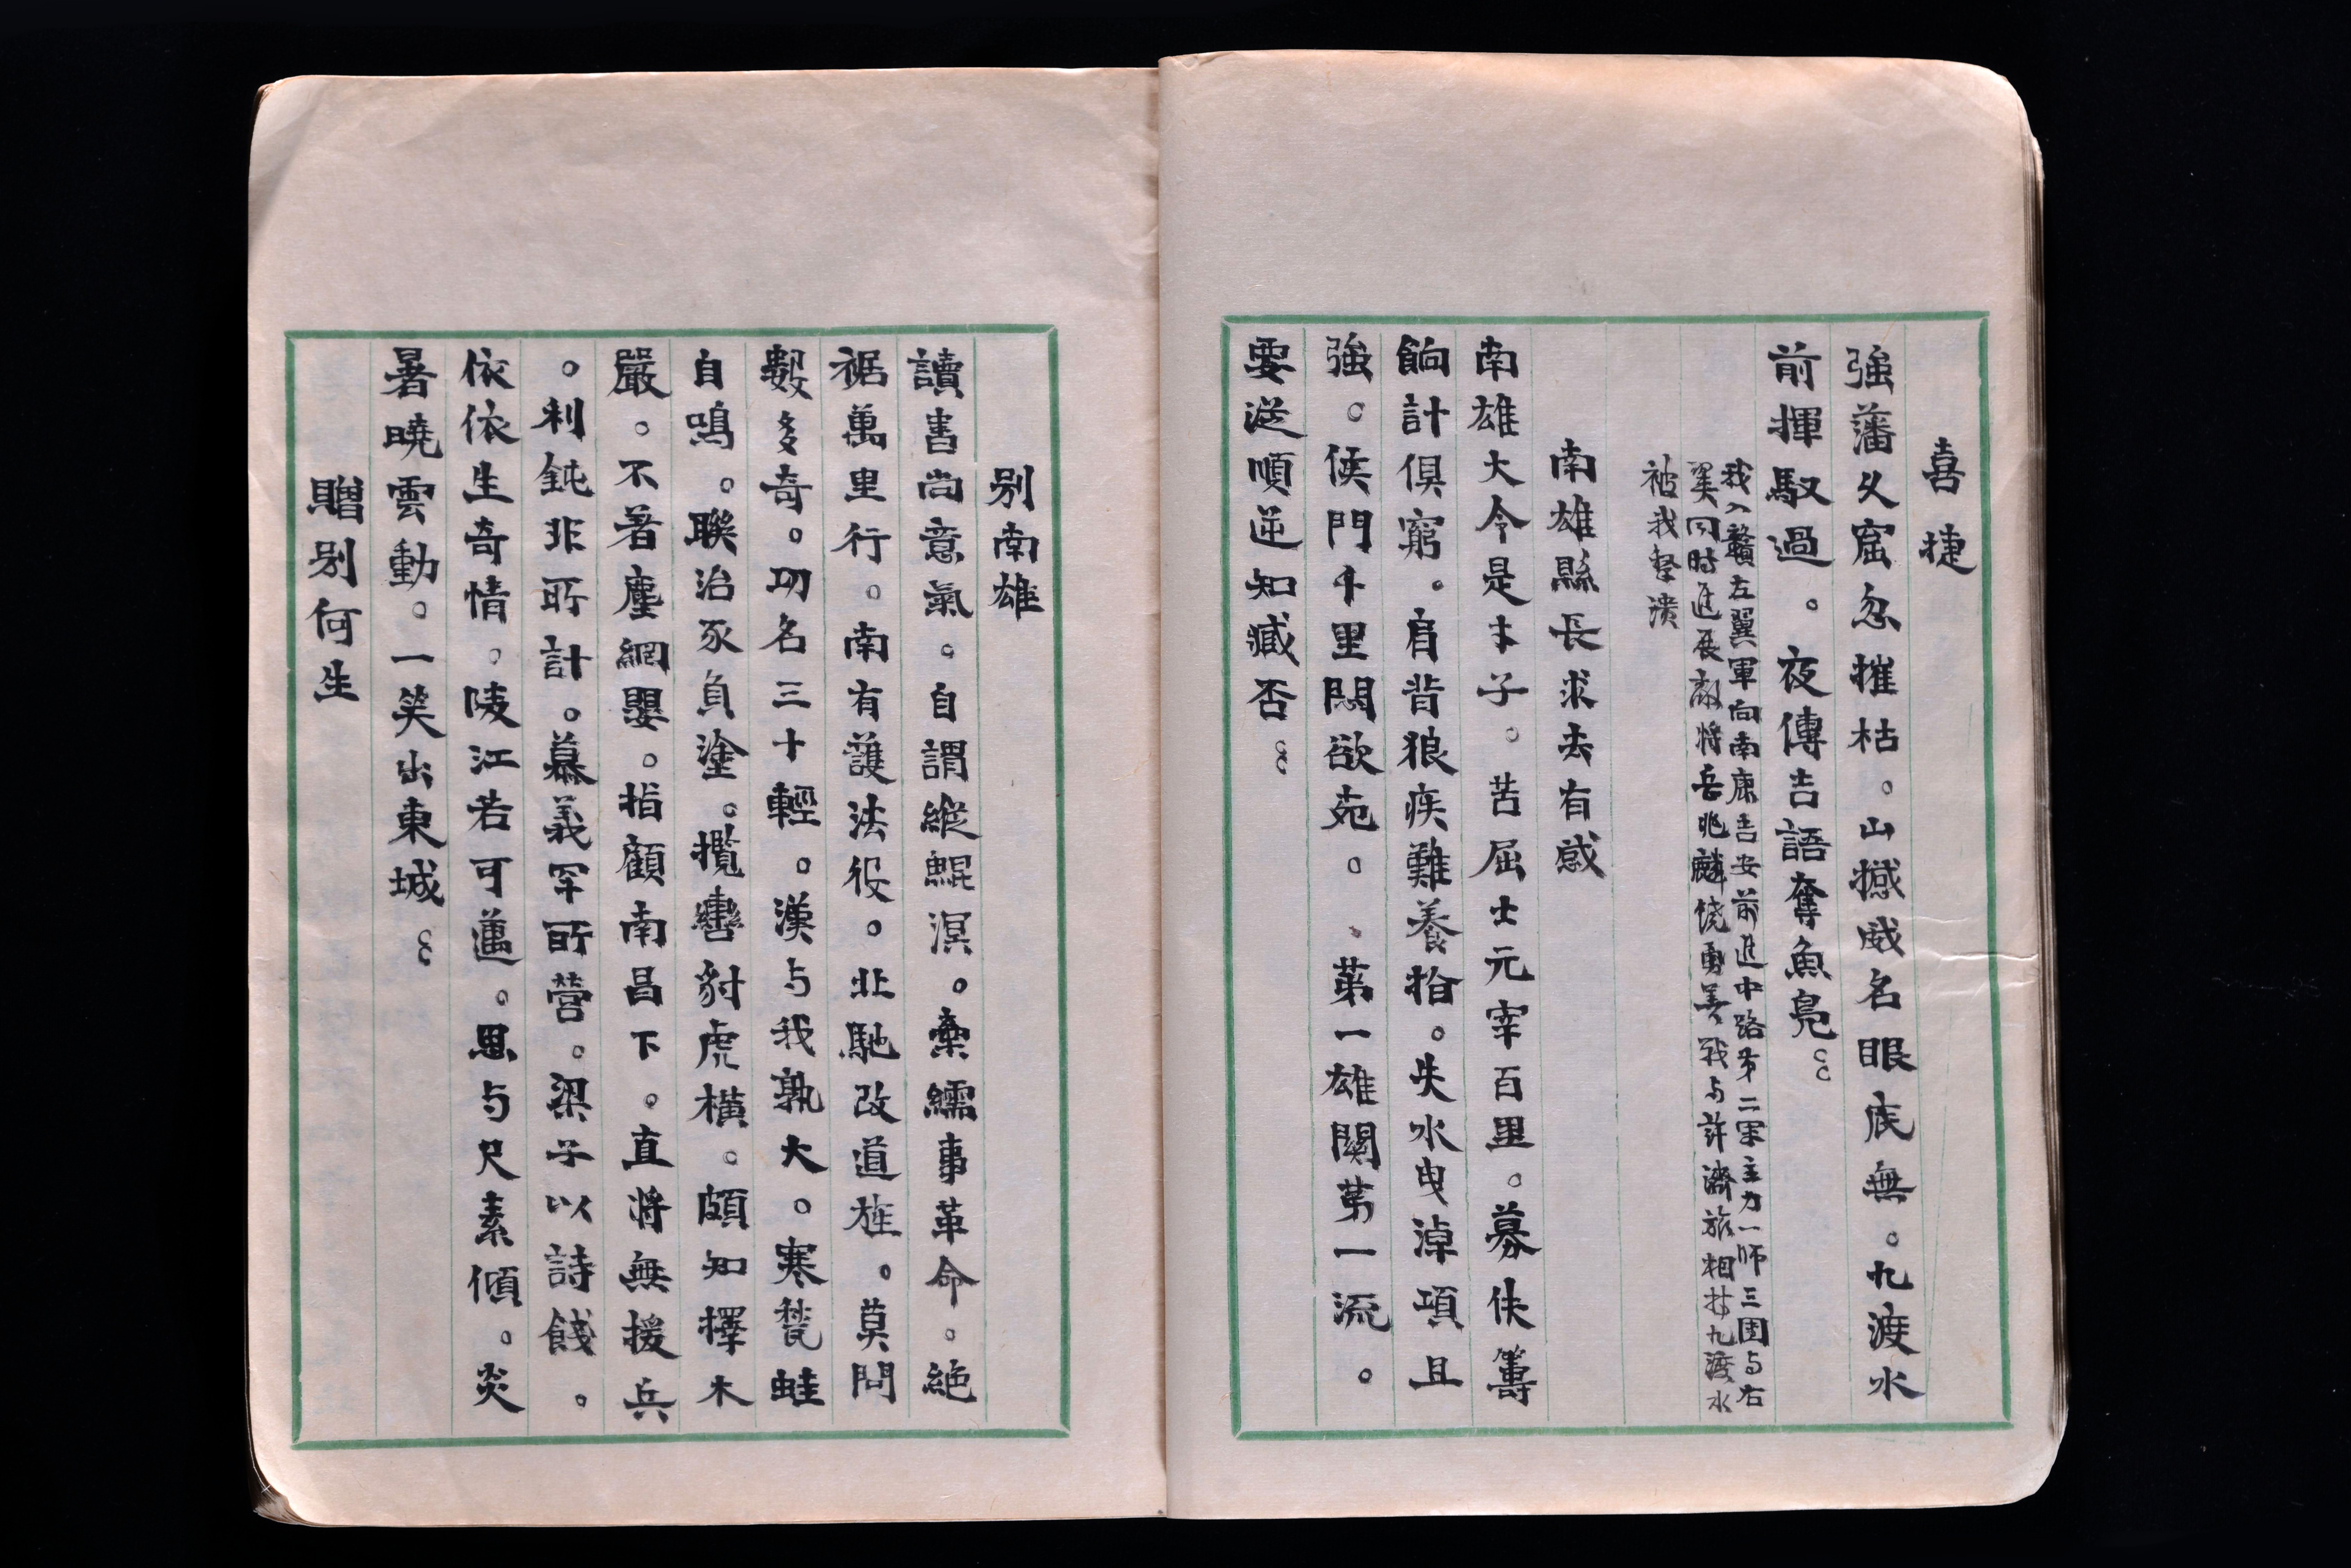 喜捷
強藩久窟忽摧枯。山撼威名眼底無。九渡水
前揮馭過。夜傳吉語奪魚鳧。
我入贛左翼軍向南康吉安前進中路第二軍主力一师三团与右
翼同時進展敵將岳兆麟饶勇善戰与許濟旅相持九渡水
被我擊潰
南雄縣長求去有感
南雄大令是才子。苦屈士元宰百里。募佚籌
餉計俱窮。肩背狼疾難養指。失水曳淖項且
強。侯門千里閟欲死。第一雄關第一流。
要送順逆知臧否。
别南雄
讀書尚意氣。自謂縱鯤溟。棄繻事革命。絕
裾萬里行。南有護法役。北馳改道旌。莫問
數多奇。功名三十輕。漢与我孰大。寒甃蛙
自鳴。聯治豕負塗。攬轡豺虎橫。頗知擇木
嚴。不著塵網嬰。指顧南昌下。直將無援兵
。利鈍非所計。慕義罕所營。梁子以詩餞。
依依生奇情。陵江若可邁。思与尺素傾。炎
暑曉雲動。一笑出東城。
贈别何生